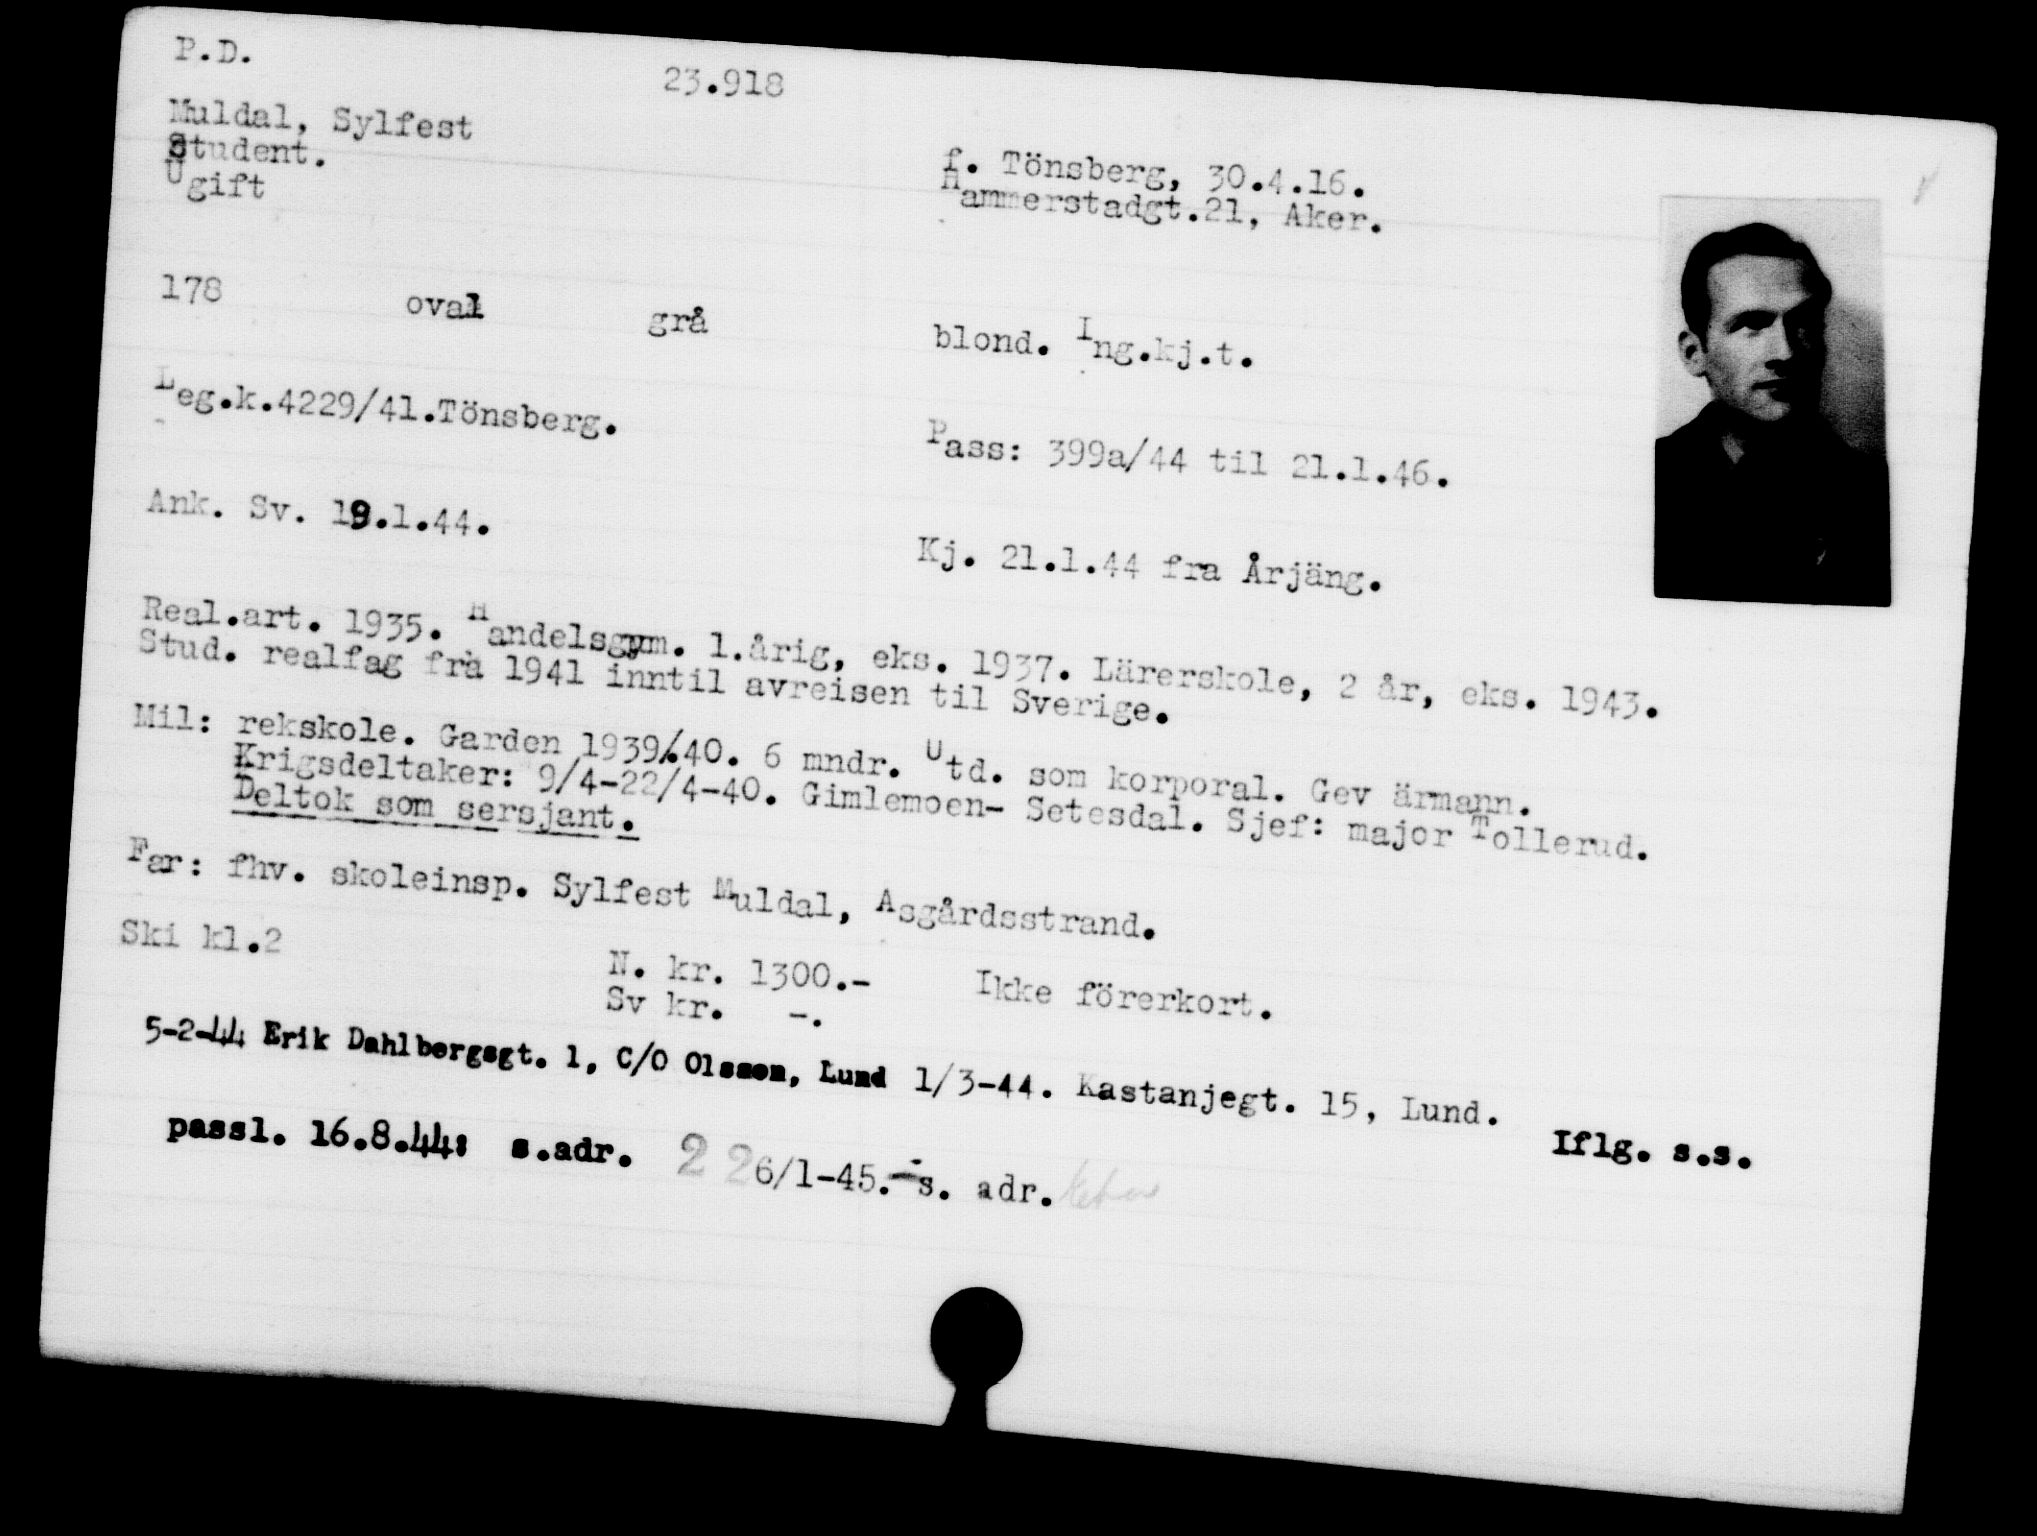 P.D.
23.918
Muldal, Sylfest
Student.
Ugift
f. Tönsberg, 30.4.16.
Hammerstadgt.21, Aker.
178 oval grå blond. Ing.kj.t.
Leg.k.4229/41.Tönsberg.
Pass: 399a/44 til 21.1.46.
Ank. Sv. 19.1.44.
Kj. 21.1.44 fra Årjäng.
Real.art. 1935. Handelsgym. 1.årig, eks. 1937. Lärerskole, 2 år, eks. 1943.
Stud. realfag fra 1941 inntil avreisen til Sverige.
Mil: rekskole. Garden 1939/40. 6 mndr. Utd. som korporal. Gev ärmann.
Krigsdeltaker: 9/4-22/4-40. Gimlemoen- Setesdal. Sjef: major Tollerud.
Deltok som sersjant.
Far: fhv. skoleinsp. Sylfest Muldal, Asgårdsstrand.
Ski kl.2
N. kr. 1300.- Ikke förerkort.
Sv kr. -.
5-2-44 Erik Dahlbergsgt. 1, C/O Olsson, Lund 1/3-44. Kastanjegt. 15, Lund.
Iflg. s.s.
passl. 16.8.44: s.adr. 2 26/1-45.- s. adr.